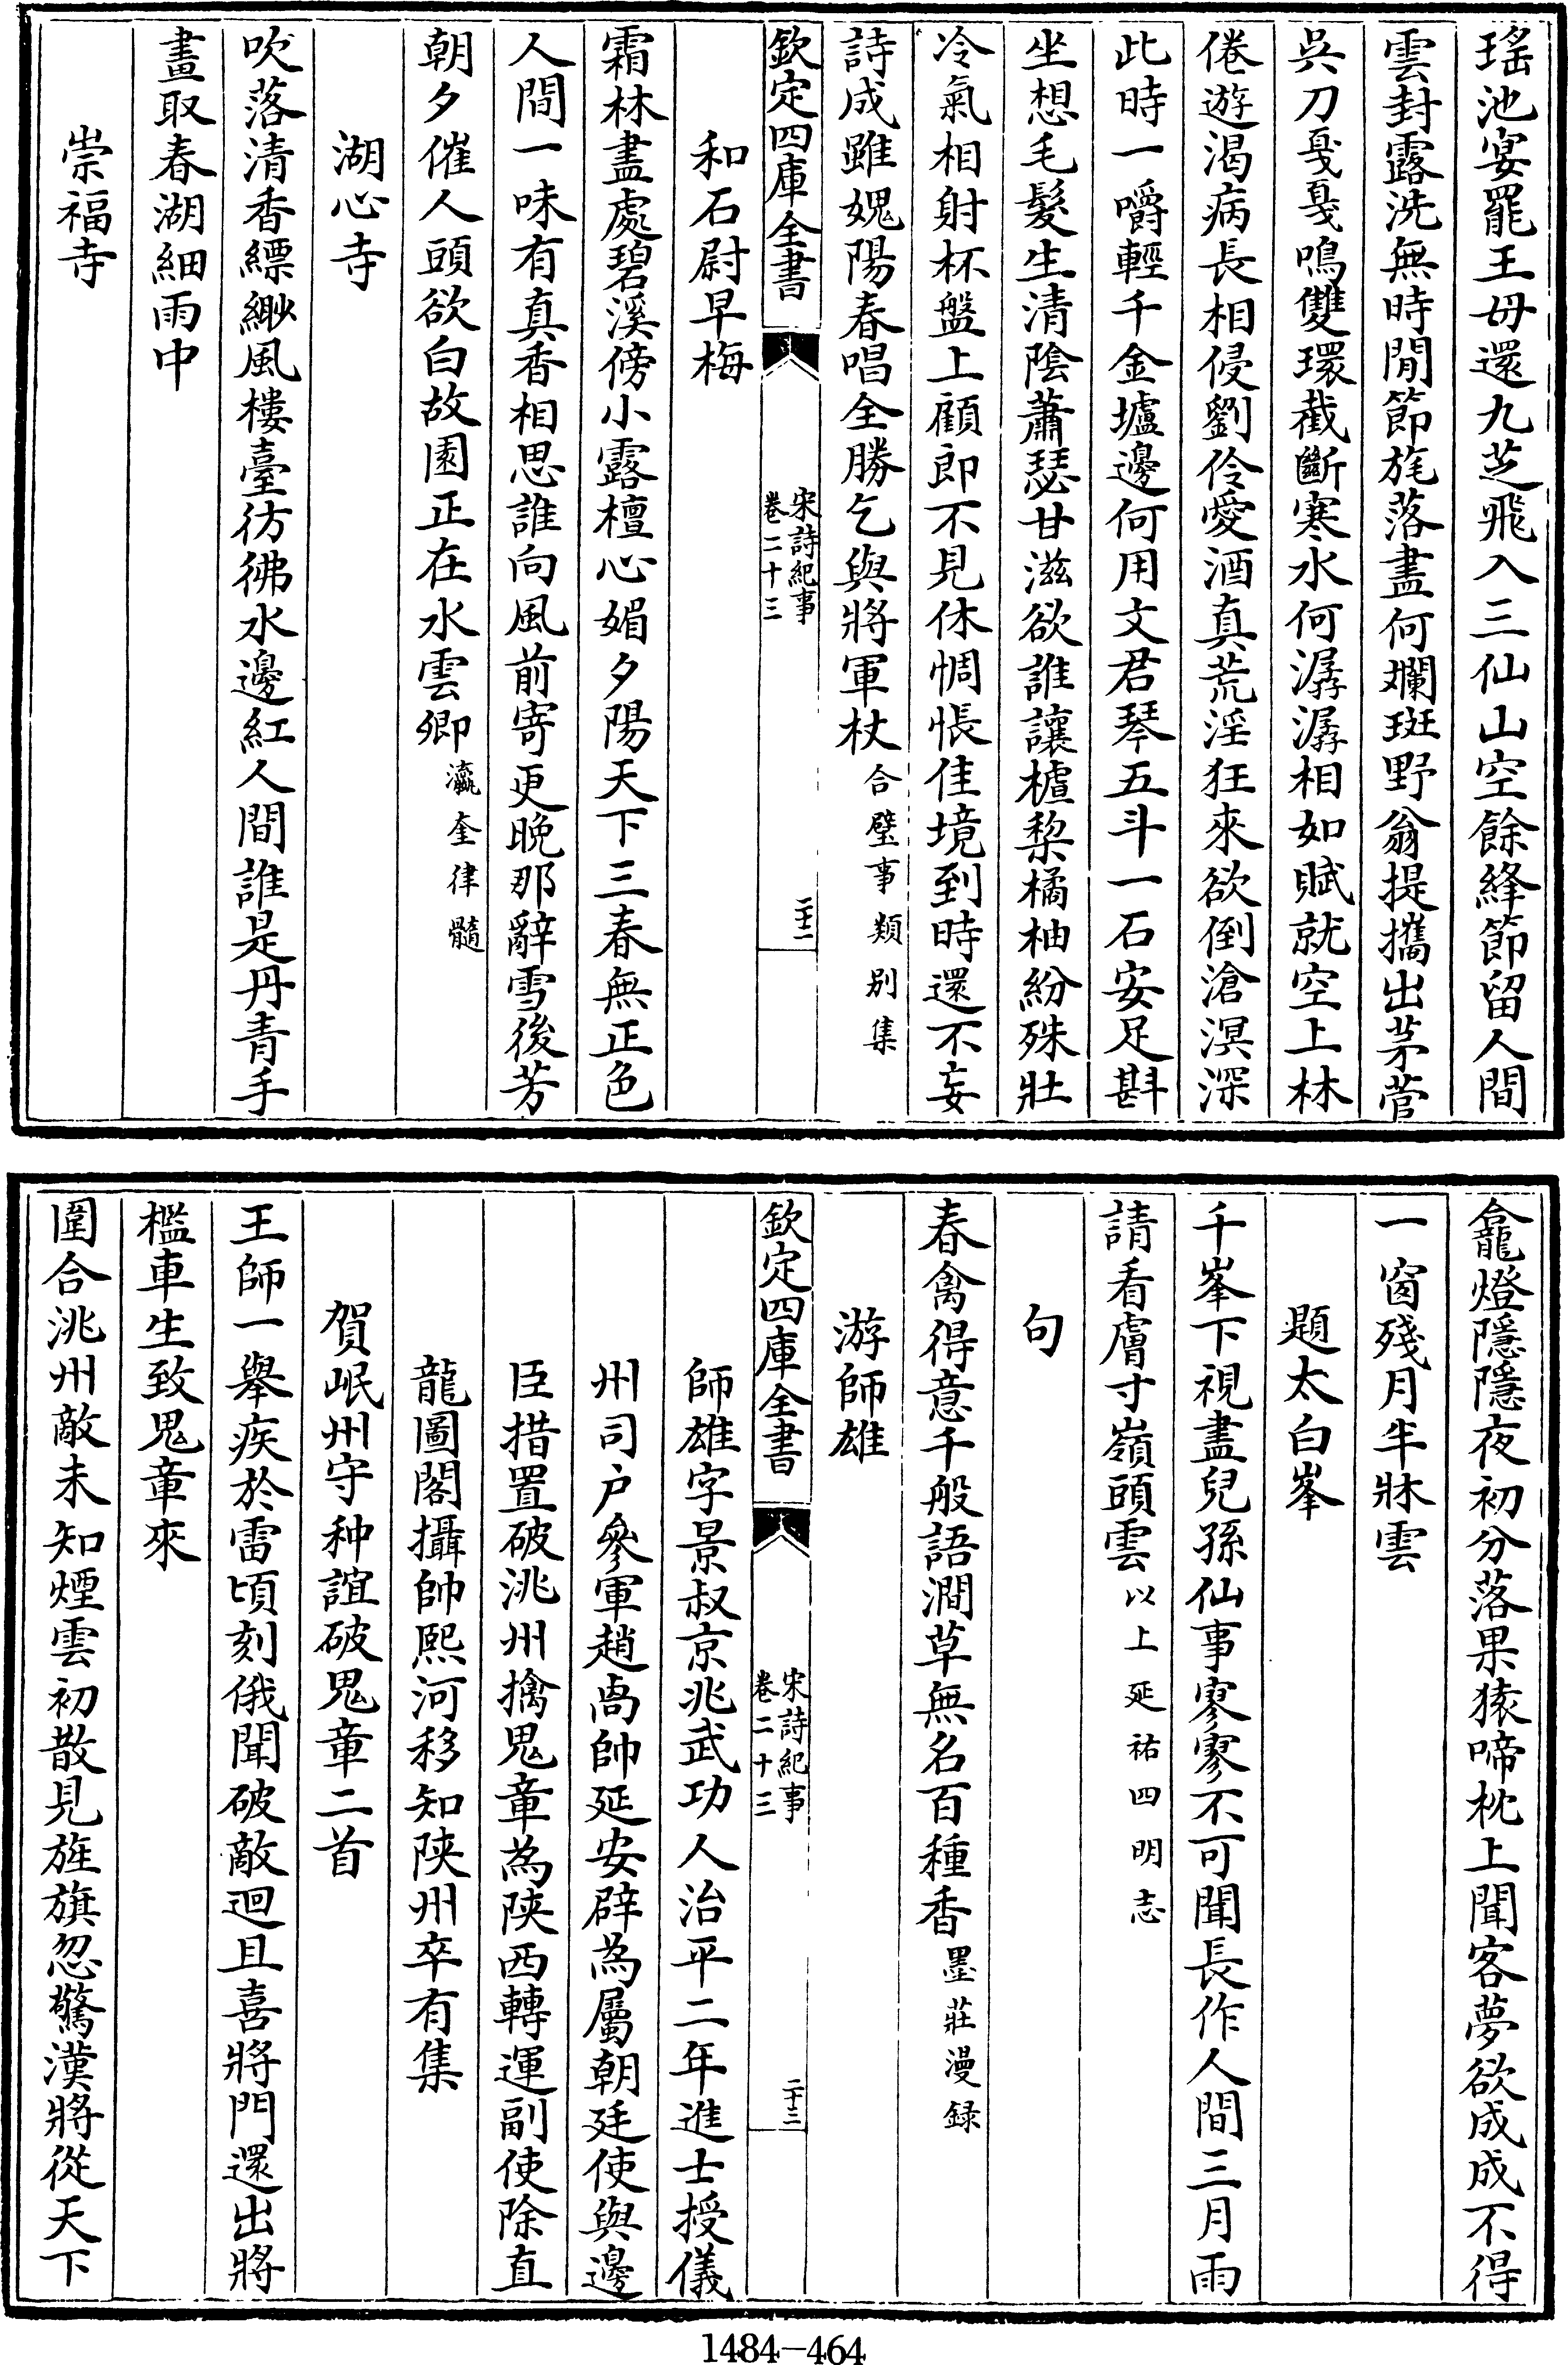 瑤池宴罷王母還九芝飛入三仙山空餘絳節留人間
雲封露洗無時閒節旄落盡何斕斑野翁提攜出茅菅
吳刀戛戛鳴雙環截斷寒水何潺潺相如賦就空上林
倦遊渴病長相侵劉伶愛酒真荒淫狂來欲倒滄溟深
此時一嚼輕千金壚邊何用文君琴五斗一石安足斟
坐想毛髮生清陰蕭瑟甘滋欲誰讓樝棃橘柚紛殊壯
冷氣相射杯盤上顧郎不見休惆悵佳境到時還不妄
詩成雖媿陽春唱全勝乞與將軍杖合璧事類別集
欽定四庫全書
宋詩紀事
卷二十三
二十二
和石尉早梅
霜林盡處碧溪傍小露檀心媚夕陽天下三春無正色
人間一味有真香相思誰向風前寄更晚那辭雪後芳
朝夕催人頭欲白故園正在水雲鄉瀛奎律髓
湖心寺
吹落清香縹緲風樓臺彷彿水邊紅人間誰是丹青手
畫取春湖細雨中
崇福寺
龕燈隱隱夜初分落果猿啼枕上聞客夢欲成成不得
一窗殘月半牀雲
題太白峯
千峯下視盡兒孫仙事寥寥不可聞長作人間三月雨
請看膚寸嶺頭雲以上延祐四明志
句
春禽得意千般語澗草無名百種香墨莊漫録
游師雄
欽定四庫全書
宋詩紀事
卷二十三
二十三
師雄字景叔京兆武功人治平二年進士授儀
州司户參軍趙卨帥延安辟為屬朝廷使與邊
臣措置破洮州擒鬼章為陝西轉運副使除直
龍圖閣攝帥熙河移知陝州卒有集
賀岷州守种誼破鬼章二首
王師一舉疾於雷頃刻俄聞破敵迴且喜將門還出將
檻車生致鬼章來
圍合洮州敵未知煙雲初散見旌旗忽驚漢將從天下
1484-464